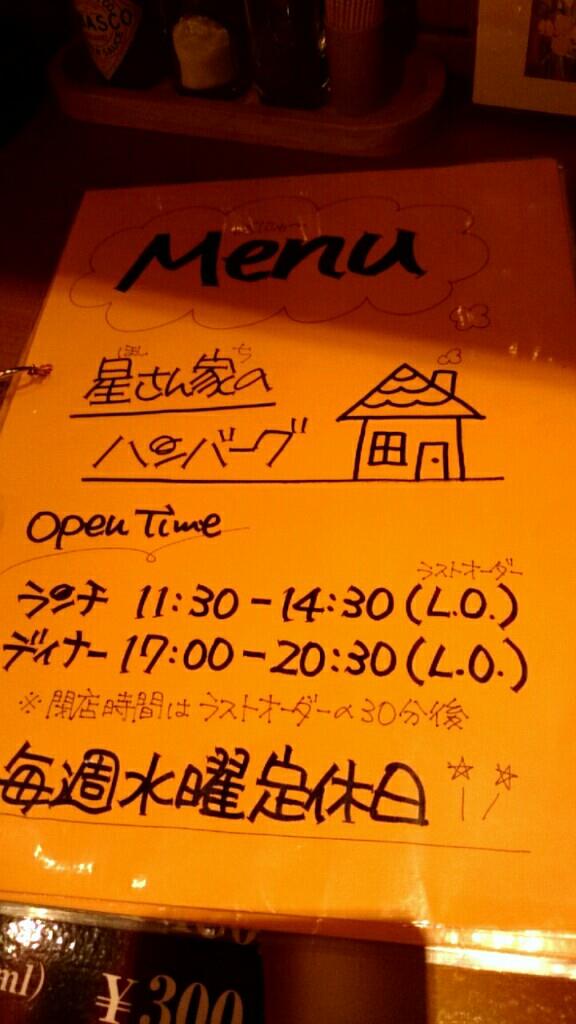 ASCO
Menu
星さん家の
ほし ち
ハンバーグ
Open Time
ラストオーダー
ランチ 11:30-14:30(L.O.)
ディナー 17:00-20:30(L.O.)
※閉店時間はラストオーダーの30分後
毎週水曜定休日
ml) ¥300